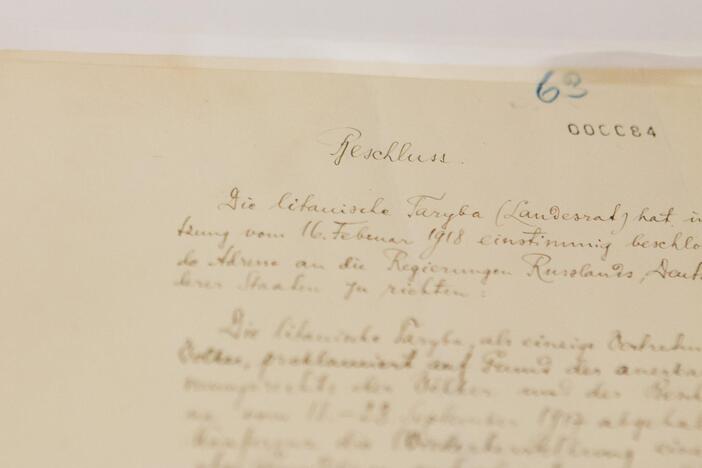 63
000084
Beschluss.
Die litauische Taryba (Landesrat) hat in
tzung vom 16. Februar 1918 einstimmig beschlo
de Adresse an die Regierungen Russlands, Deut
derer Staaten zu richten:
Die litauische Taryba, als einzige Vertretun
Volkes, proklamiert auf Grund des anerka
mungsrechts der Völker und der Besch
vom 18.–23. September 1917 abgehal
Konferenz die